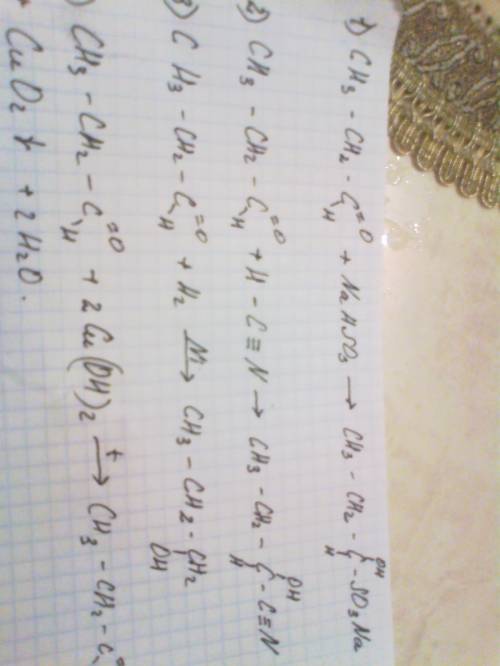 1) CH3 - CH2 - C=O H + NaHSO3 → CH3 - CH2 - C OH H - SO3Na
2) CH3 - CH2 - C=O H + H - C≡N → CH3 - CH2 - C OH H - C≡N
3) CH3 - CH2 - C=O H + H2 Ni→ CH3 - CH2 - CH2 OH
) CH3 - CH2 - C=O H + 2Cu(OH)2 t→ CH3 - CH2 - C
CuO2 + 2H2O.